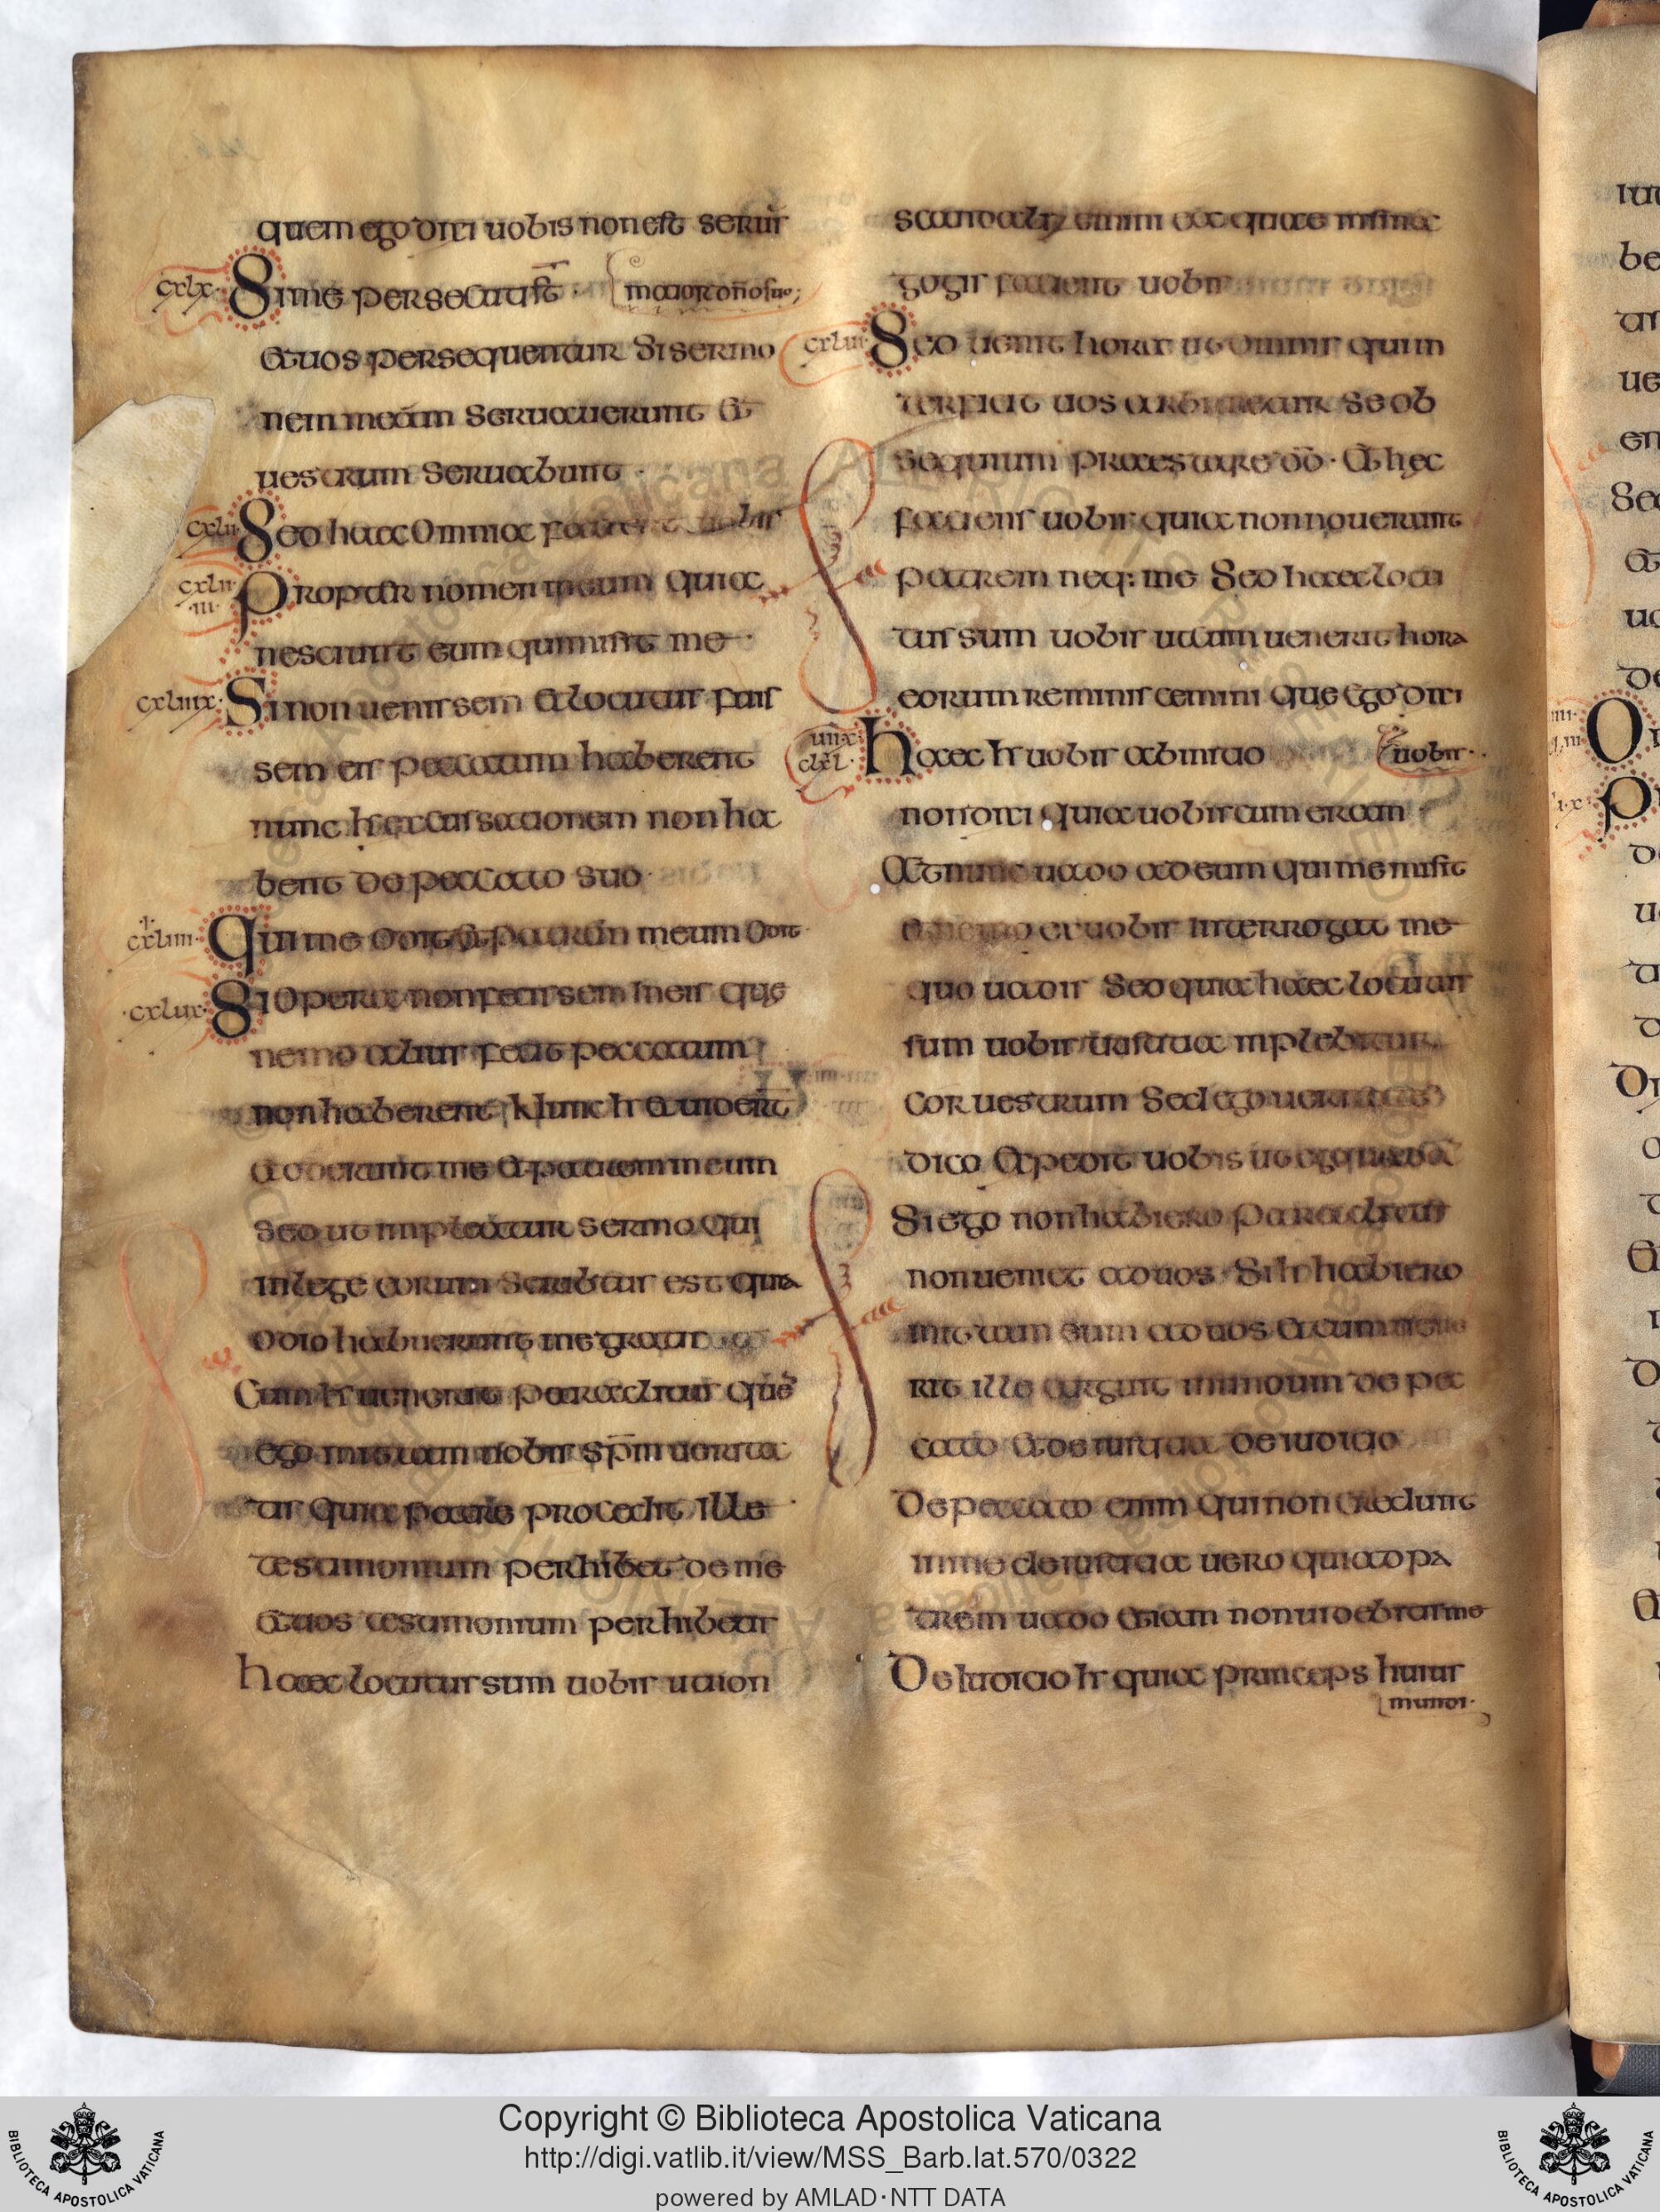 quem ego dixi uobis non est seruus
cxlx· Si me persecuti st̄ · maior dn̄o suo;
et uos persequentur si sermo
nem meum seruauerunt et
uestrum seruabunt ·
cxlii Sed haec omnia facient uobis
cxlii ·iii· propter nomen meum quia
nesciunt eum qui misit me ·
cxluiix· Si non uenissem et locutus fuis
sem eis peccatum haberent
nunc hr̄ excussationem non ha
bent de peccato suo ·
cxliiii· Qui me odit et patrem meum odit
·cxlux· Si opera non fecissem in eis que
nemo alius fecit peccatum
non haberent nunc hr̄ et uiderт̄
et oderunt me et patrem meum
sed ut impleatur sermo qui
in lege eorum scribtus est quia
odio habuerunt me gratis
Cum hr̄ uenerit paraclitus quē
ego mittam uobis sp̄m uerita
tis qui a patre procedit ille ·
testimonium perhibet de me
et uos testimonium perhibetis
haec locutus sum uobis ut non
scandalizemini ex quae in sina
gogis facient uobis
cxlui· Sed uenit hora ut omnis qui in
terficit uos arbitretur se ob
sequium praestare dō · et hec
facient uobis quia non nouerunt
patrem neq: me Sed haec locu
tus sum uobis ut cum uenerit hora
eorum reminiscemini que ego dixi
haec hr̄ uobis ab initio uobis ·
non dixi quia uobiscum eram ·
At nunc uado ad eum qui me misit
et nemo ex uobis interrogat me
quo uadis Sed quia haec locutus
sum uobis tristitia inplebitur
cor uestrum Sed ego ueritatē
dico expedit uobis ut ego uadā
Si ego non habiero paraclitus
non ueniet ad uos Si hr̄ habiero
mittam eum ad uos et cum uene
rit ille arguit mundum de pec
cato et de iustitia de iudicio
De peccato enim qui non credunt
in me de iustitia uero quia ad pa
trem uado etiam non uidebitis me
De iudicio hr̄ quia princeps huius
mundi ·
Copyright © Biblioteca Apostolica Vaticana
http://digi.vatlib.it/view/MSS_Barb.lat.570/0322
powered by AMLAD·NTT DATA
BIBLIOTECA APOSTOLICA VATICANA
BIBLIOTECA APOSTOLICA VATICANA